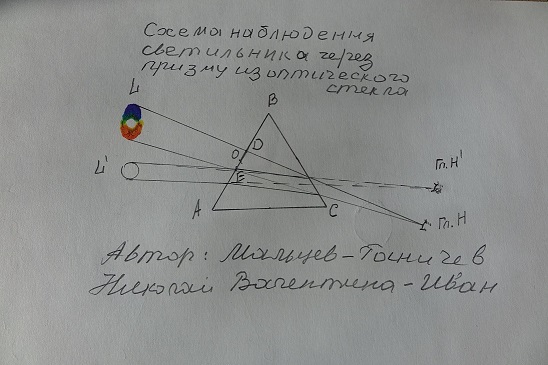 Схема наблюдения
светильника через
призму из оптического
стекла
L
B
D
O
L'
E
Гл.Н'
Гл.Н
A
C
Автор: Мальцев-Таничев
Николай Валентина-Иван